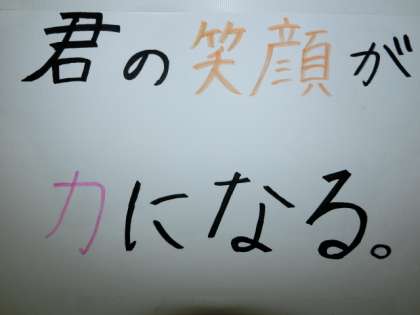 君の笑顔が
力になる。